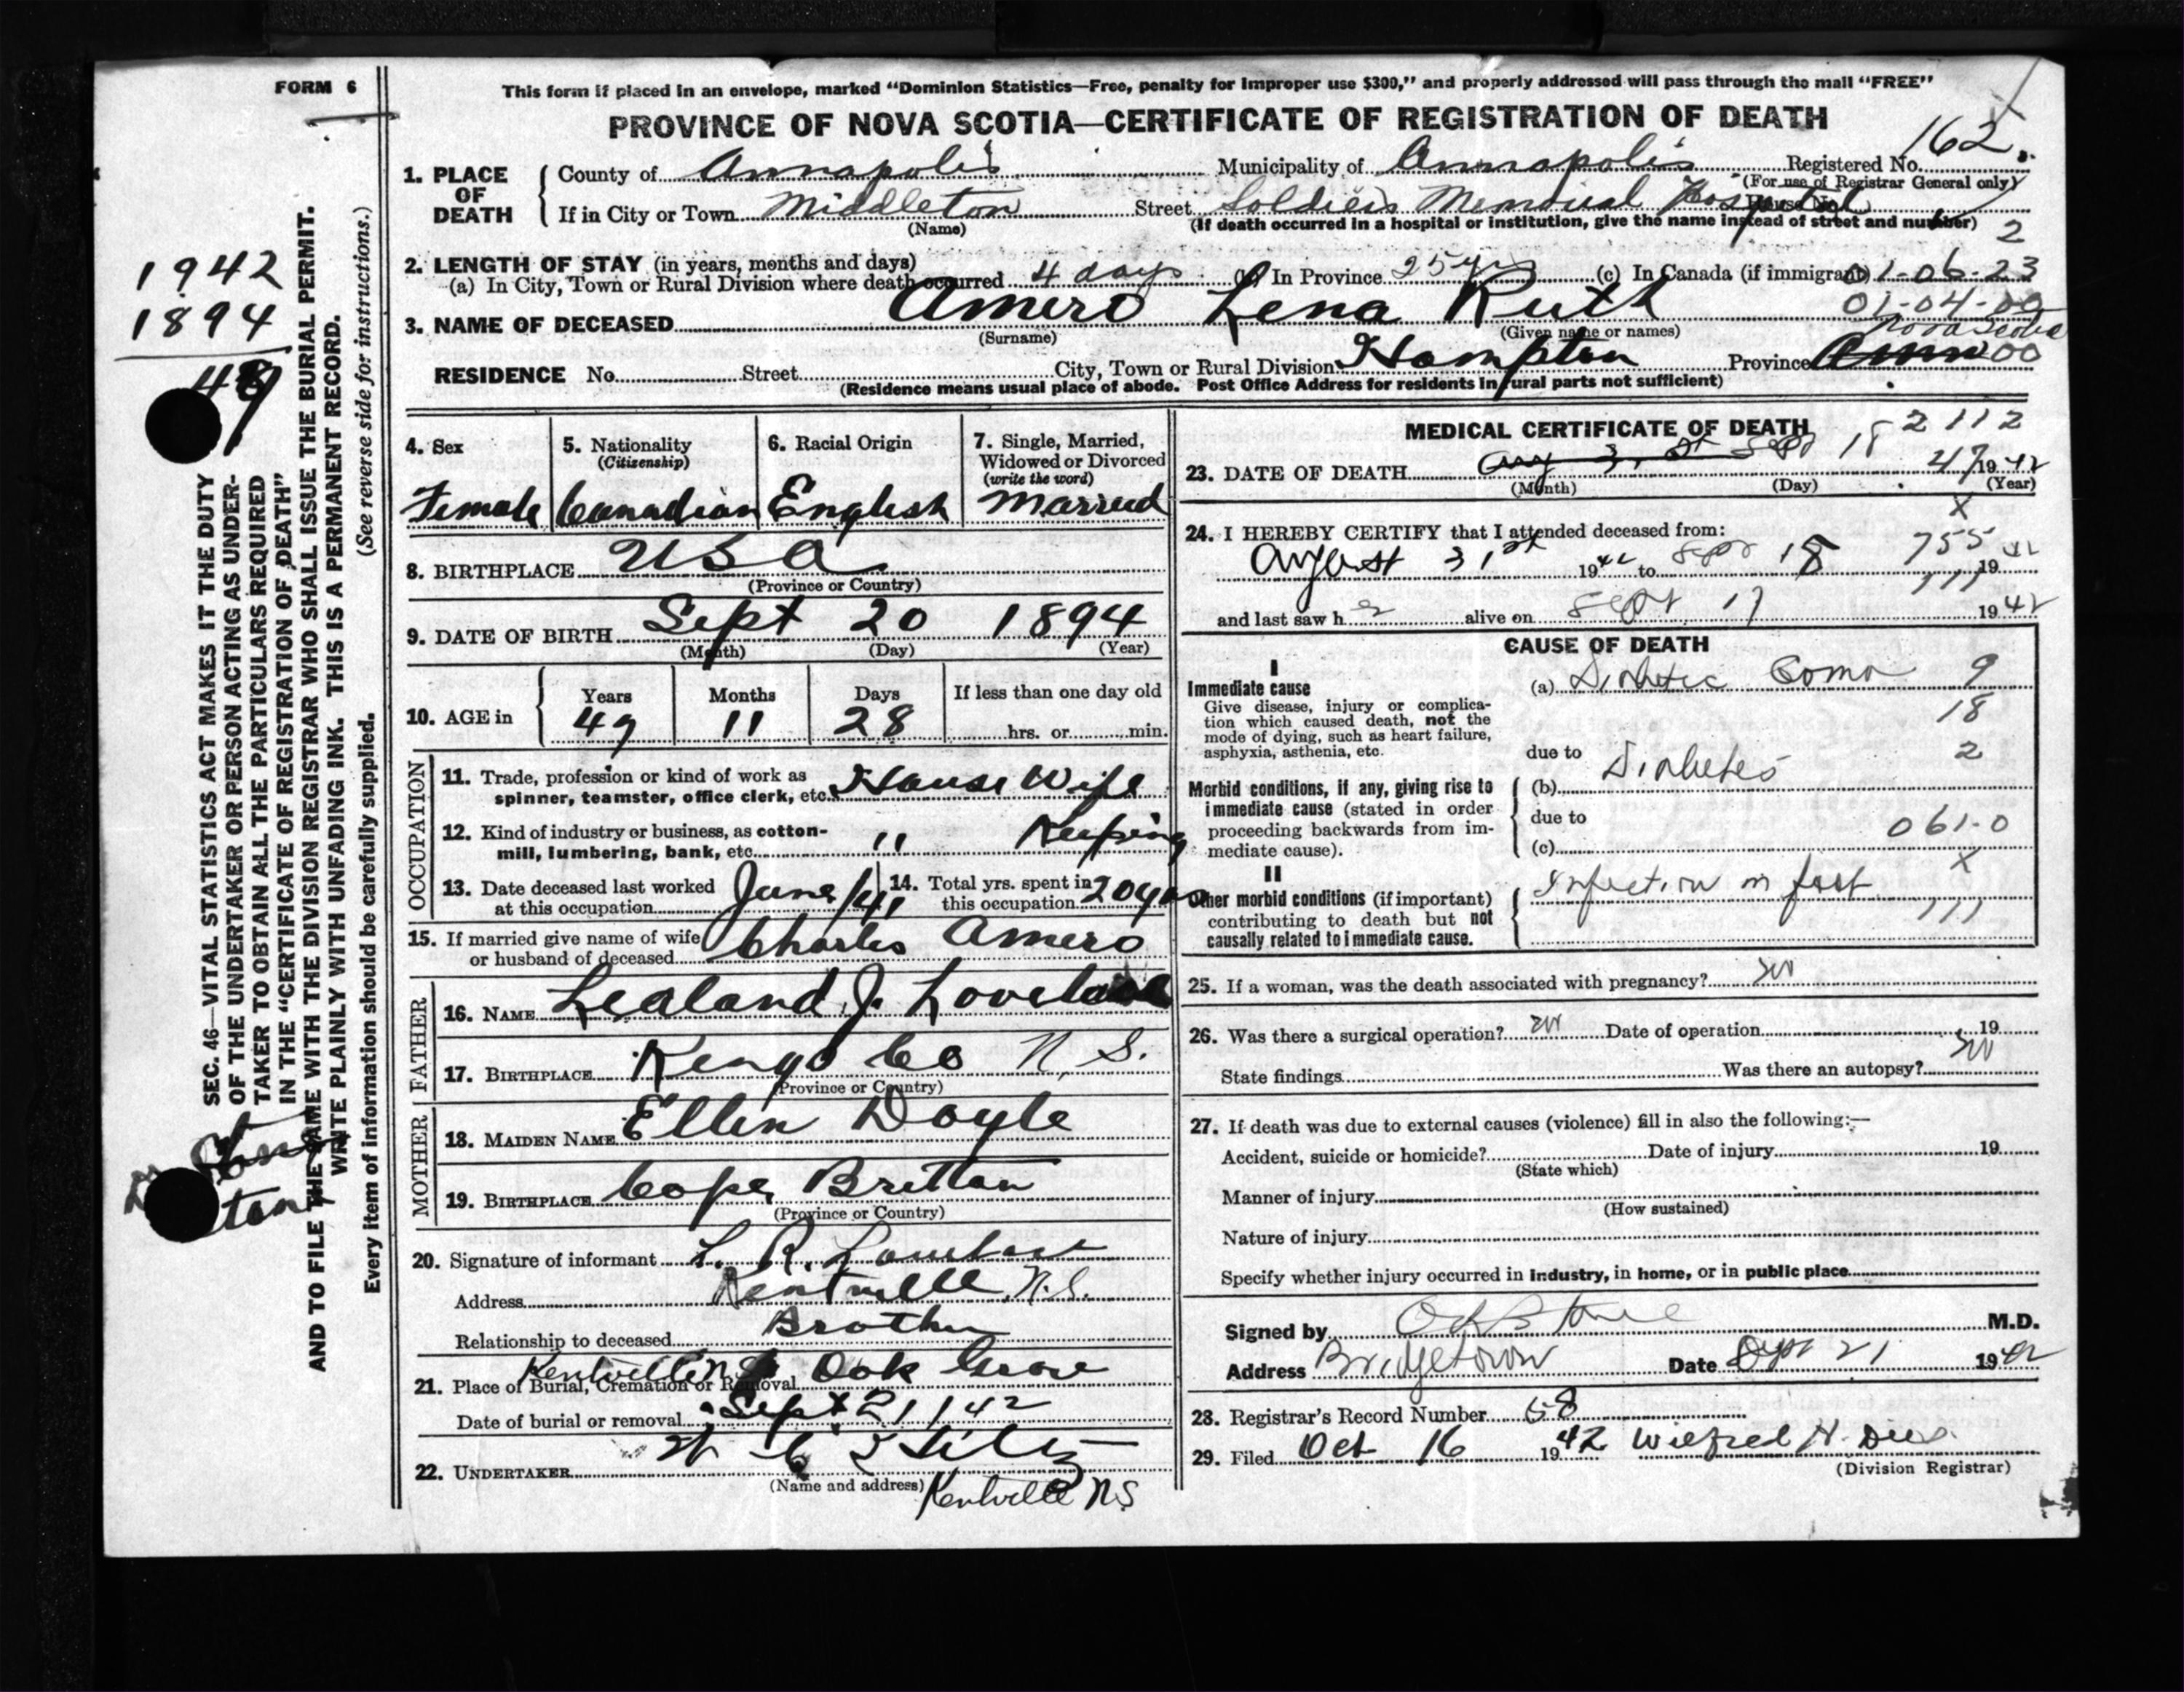 FORM 6
This form if placed in an envelope, marked "Dominion Statistics—Free, penalty for improper use $300," and properly addressed will pass through the mail "FREE"
PROVINCE OF NOVA SCOTIA—CERTIFICATE OF REGISTRATION OF DEATH
162.
1. PLACE OF DEATH County of Annapolis Municipality of Annapolis Registered No.
(For use of Registrar General only)
If in City or Town Middleton Street Soldiers Memorial Hospital House No.
(Name) (If death occurred in a hospital or institution, give the name instead of street and number)
2
2. LENGTH OF STAY (in years, months and days)
(a) In City, Town or Rural Division where death occurred 4 days (b) In Province 25 yrs (c) In Canada (if immigrant) 01-06-23
01-04-00
3. NAME OF DECEASED Amero Lena Ruth
(Surname) (Given name or names)
Nova Scotia
RESIDENCE No. Street City, Town or Rural Division Hampton Province Ann 00
(Residence means usual place of abode. Post Office Address for residents in rural parts not sufficient)
1942
1894
SEC. 46—VITAL STATISTICS ACT MAKES IT THE DUTY
OF THE UNDERTAKER OR PERSON ACTING AS UNDER-
TAKER TO OBTAIN ALL THE PARTICULARS REQUIRED
IN THE "CERTIFICATE OF REGISTRATION OF DEATH"
AND TO FILE THE SAME WITH THE DIVISION REGISTRAR WHO SHALL ISSUE THE BURIAL PERMIT.
WRITE PLAINLY WITH UNFADING INK. THIS IS A PERMANENT RECORD.
(See reverse side for instructions.)
Every item of information should be carefully supplied.
4. Sex
Female
5. Nationality
(Citizenship)
Canadian
6. Racial Origin
English
7. Single, Married,
Widowed or Divorced
(write the word)
Married
8. BIRTHPLACE USA
(Province or Country)
9. DATE OF BIRTH Sept 20 1894
(Month) (Day) (Year)
10. AGE in Years Months Days If less than one day old
47 11 28 hrs. or min.
OCCUPATION
11. Trade, profession or kind of work as
spinner, teamster, office clerk, etc. House Wife
12. Kind of industry or business, as cotton-
mill, lumbering, bank, etc. " Keeping
13. Date deceased last worked
at this occupation June/41
14. Total yrs. spent in
this occupation 20 yrs
15. If married give name of wife
or husband of deceased Charles Amero
FATHER
16. NAME Lealand J. Lovelace
17. BIRTHPLACE Kings Co N.S.
(Province or Country)
MOTHER
18. MAIDEN NAME Ellen Doyle
19. BIRTHPLACE Cape Bretton
(Province or Country)
20. Signature of informant L. R. Lovelace
Address Kentville N.S.
Relationship to deceased Brother
21. Place of Burial, Cremation or Removal Kentville N.S. Oak Grove
Date of burial or removal Sept 21/42
22. UNDERTAKER
(Name and address) Kentville N.S
MEDICAL CERTIFICATE OF DEATH
2112
23. DATE OF DEATH Aug 31st Sept 18 47 1942
(Month) (Day) (Year)
X
24. I HEREBY CERTIFY that I attended deceased from:
755
August 31st 1942 to Sept 18 1942
111
and last saw her alive on Sept 17 1942
CAUSE OF DEATH
I
Immediate cause
Give disease, injury or complica-
tion which caused death, not the
mode of dying, such as heart failure,
asphyxia, asthenia, etc.
(a) Diabetic Coma 9
18
due to 2
Morbid conditions, if any, giving rise to
immediate cause (stated in order
proceeding backwards from im-
mediate cause).
(b) Diabetes
due to
061-0
(c)
X
II
Other morbid conditions (if important)
contributing to death but not
causally related to immediate cause.
Infection in foot
111
25. If a woman, was the death associated with pregnancy? no
26. Was there a surgical operation? no Date of operation 19
State findings Was there an autopsy? no
27. If death was due to external causes (violence) fill in also the following:—
Accident, suicide or homicide? Date of injury 19
(State which)
Manner of injury
(How sustained)
Nature of injury
Specify whether injury occurred in industry, in home, or in public place
Signed by M.D.
Address Bridgetown Date Sept 21 1942
28. Registrar's Record Number 58
29. Filed Oct 16 1942 Wilfred H.
(Division Registrar)